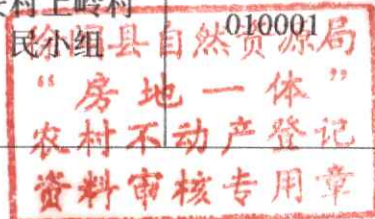 村上岭村
民小组
010001
徐闻县自然资源局
“房地一体”
农村不动产登记
资料审核专用章